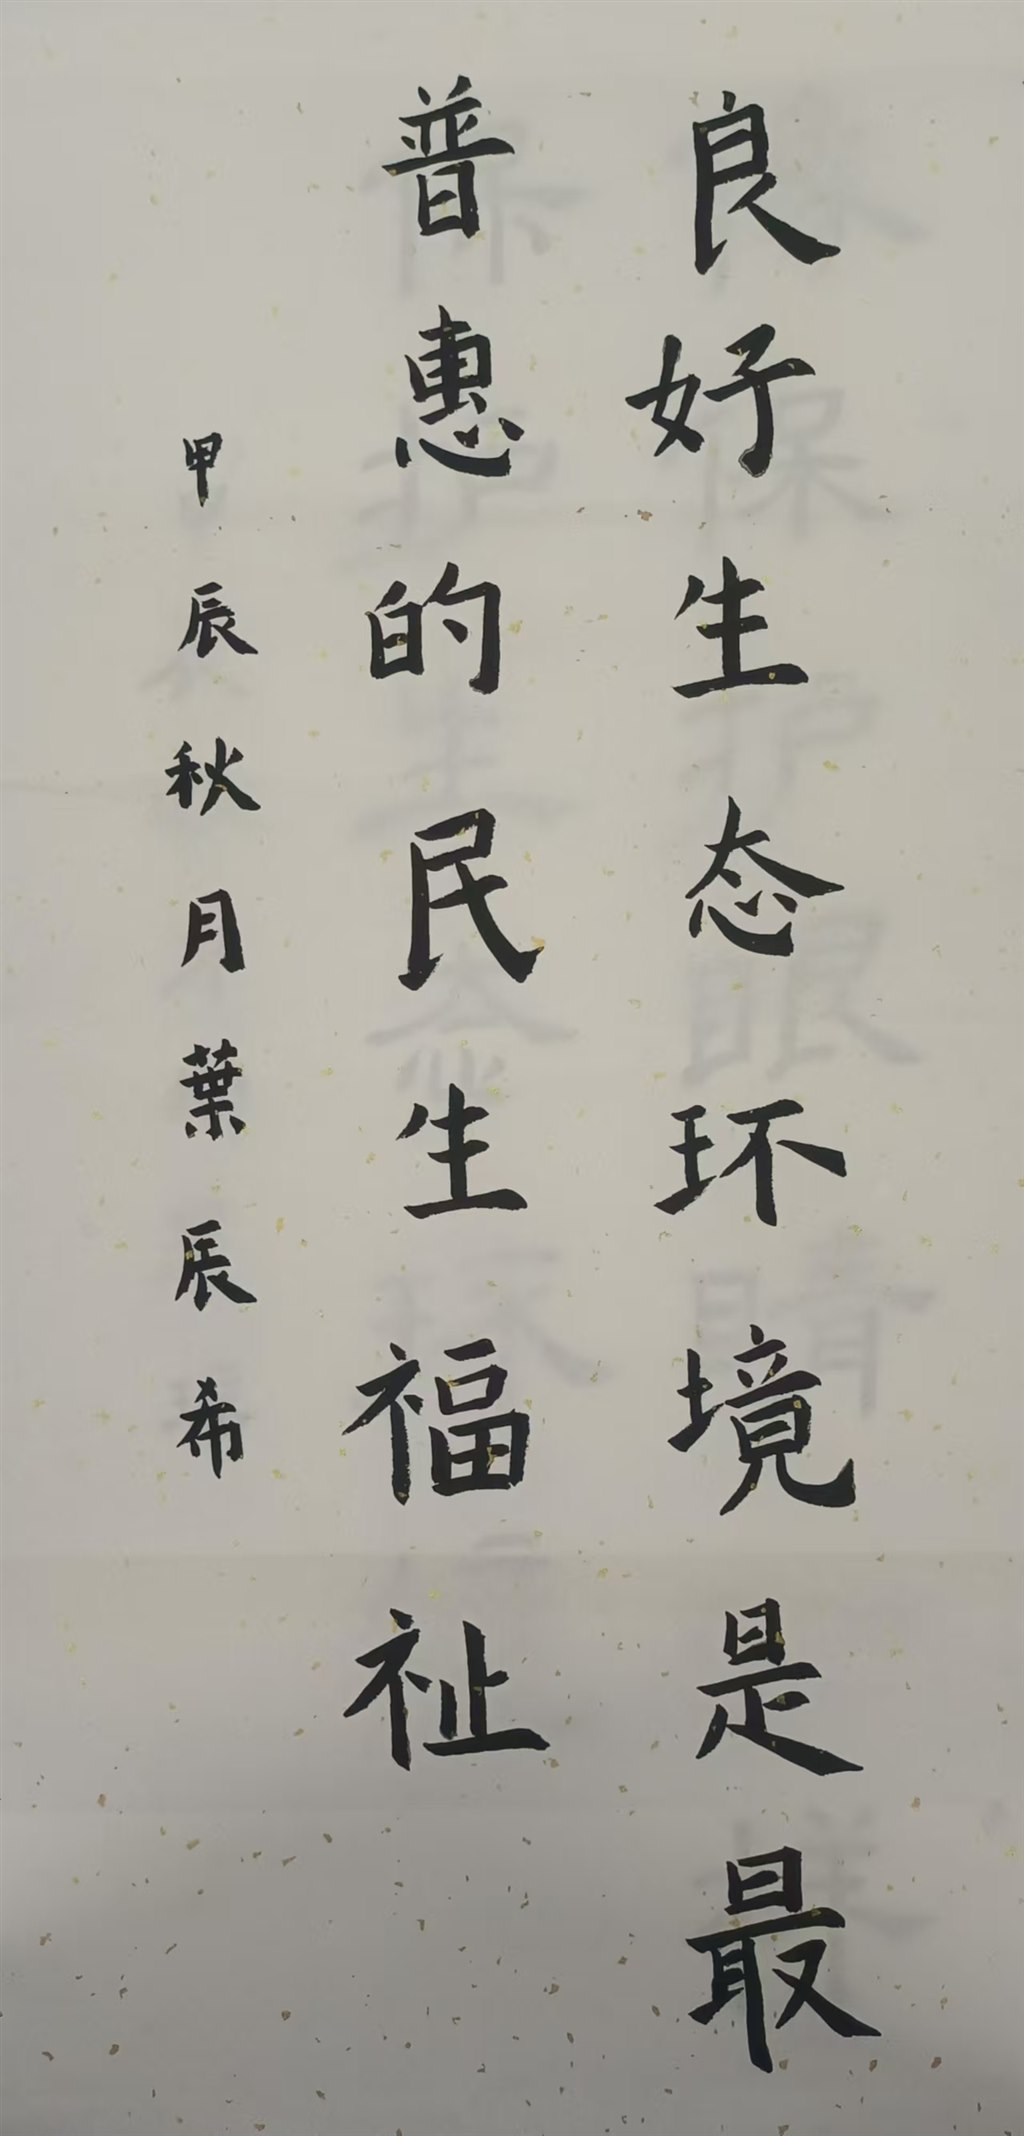 良好生态环境是最
普惠的民生福祉
甲辰秋月葉辰希